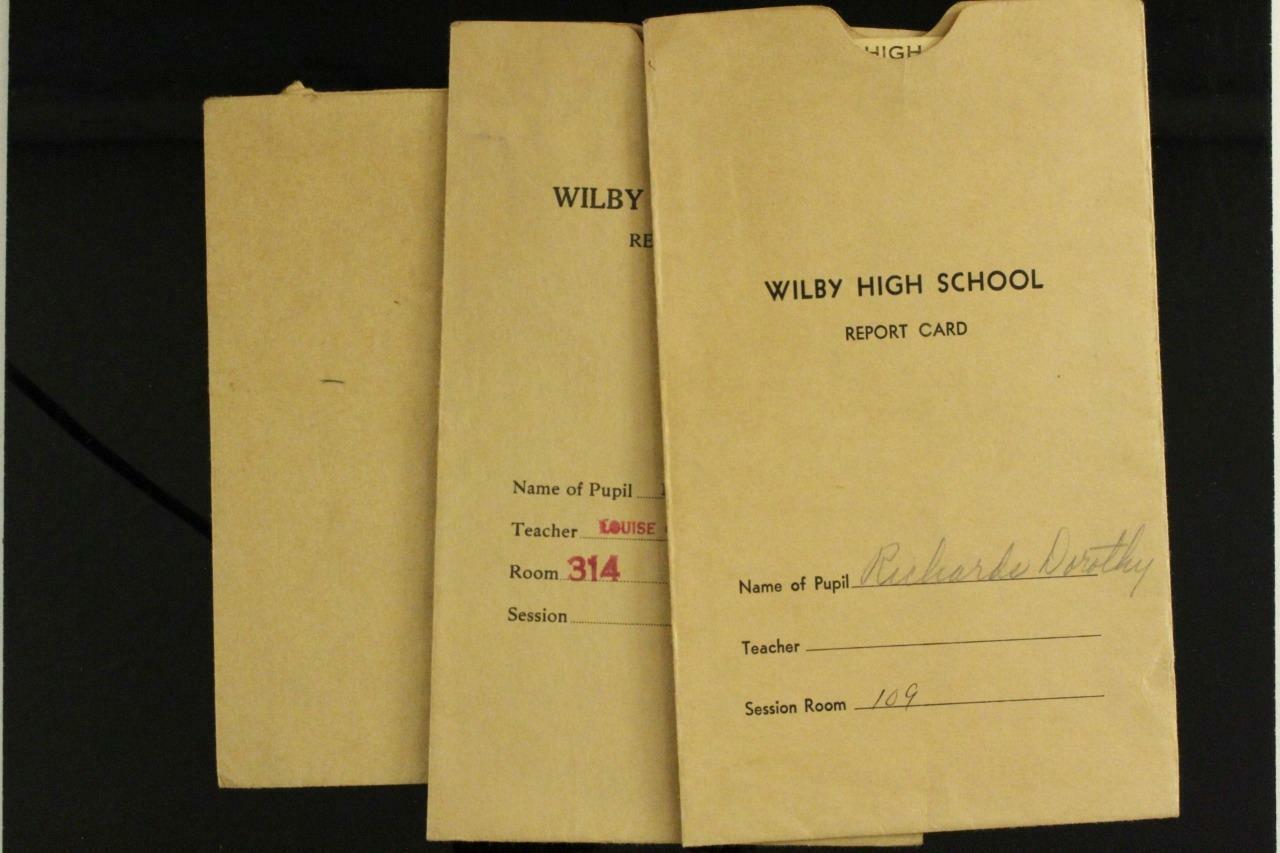 HIGH
WILBY HIGH SCHOOL
REPORT CARD
Name of Pupil Richards Dorothy
Teacher
Session Room 109
WILBY
RE
Name of Pupil
Teacher LOUISE
Room 314
Session